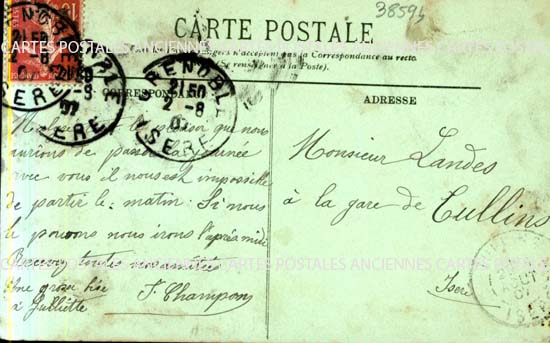 38594
CARTE POSTALE
n'acceptent pas la Correspondance au recto.
(Se renseigner à la Poste).
CORRESPONDANCE
ADRESSE
GRENOBLE
21 50
2 - 8
07
ISERE
Malgré le plaisir que nous
aurions de passer la journée
avec vous il nous est impossible
de partir le matin. Si nous
le pouvons nous irons l'après midi
Recevez toutes nos amitiés
Une grosse bise
à Julliette
F. Champon
Monsieur Landes
à la gare de Tullins
Isère
CARTES POSTALES ANCIENNES
CARTES POSTALES ANCIENNES